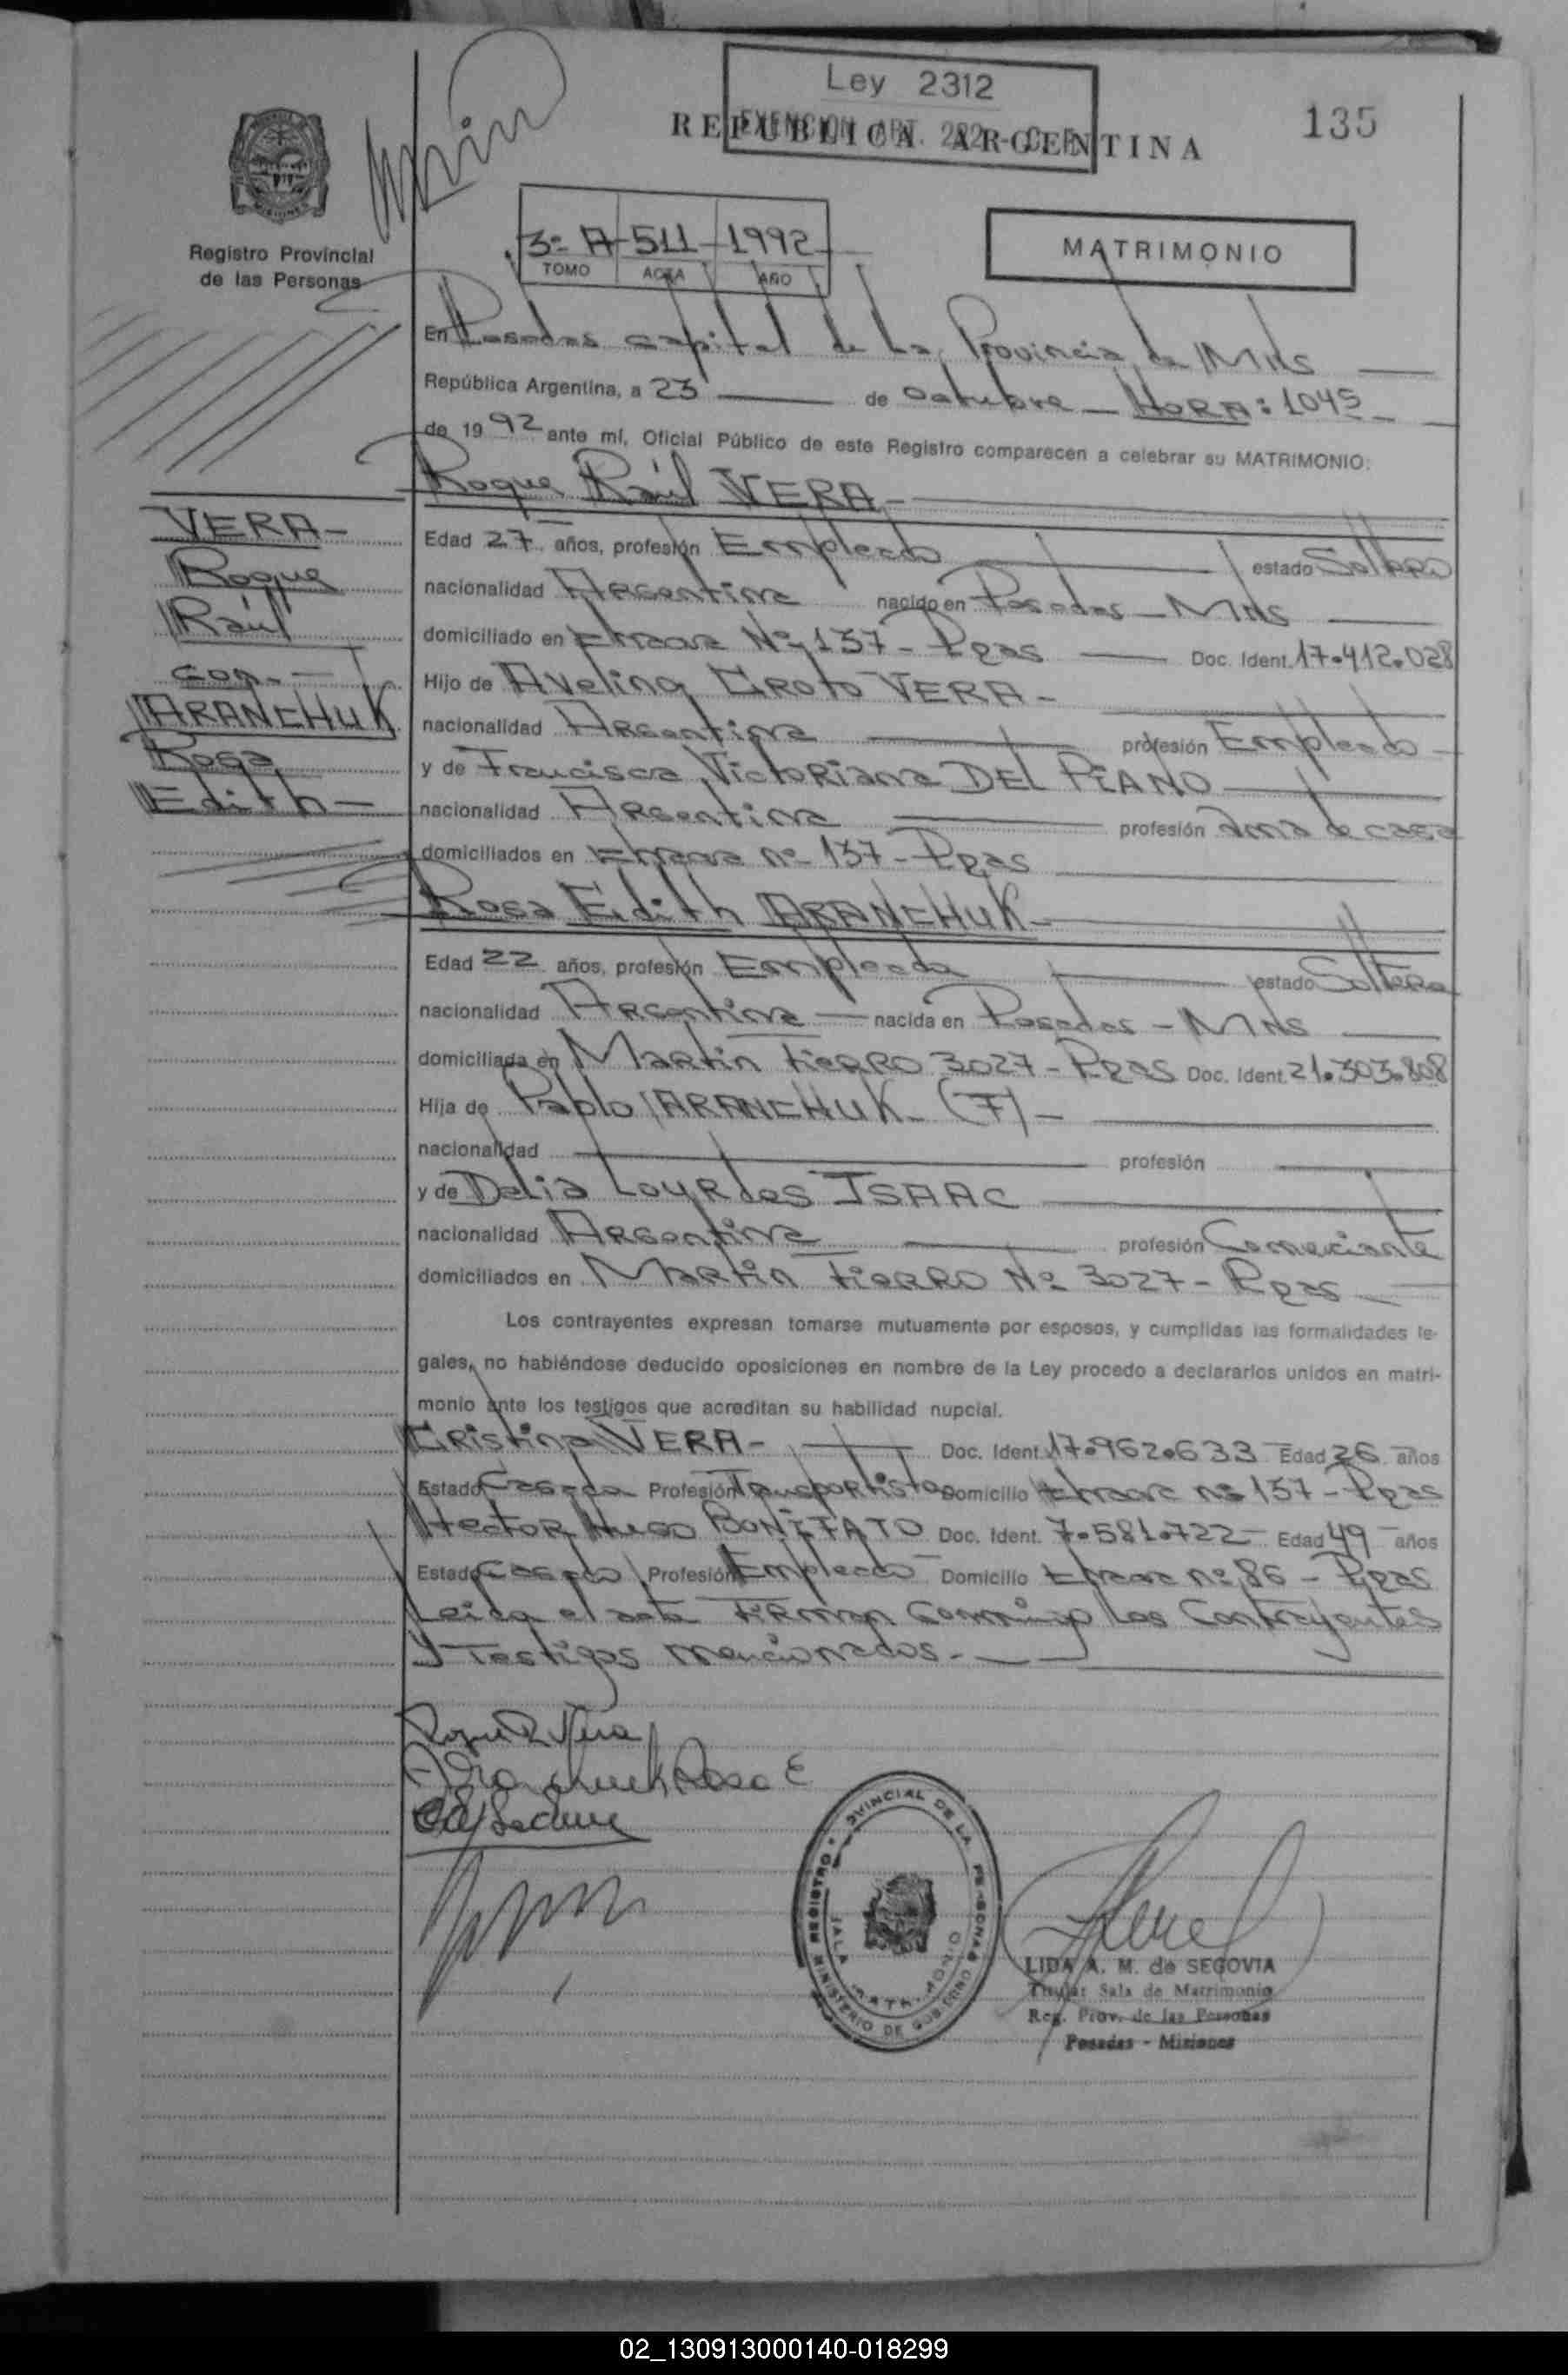 Ley 2312
EXENCION ART. 282
REPUBLICA ARGENTINA
135
Registro Provincial
de las Personas
3º A 511 1992
TOMO ACTA AÑO
MATRIMONIO
En Posadas capital de la Provincia de Mns
República Argentina, a 23 de Octubre - HORA: 1045
de 1992 ante mí, Oficial Público de este Registro comparecen a celebrar su MATRIMONIO:
Roque Raúl VERA-
VERA-
Roque
Raúl
con.-
ARANCHUK
Rosa
Edith-
Edad 27 años, profesión Empleado estado Soltero
nacionalidad Argentina nacido en Posadas - Mns
domiciliado en Nº 137 - Pdas Doc. Ident. 17.412.028
Hijo de Avelino VERA-
nacionalidad Argentina profesión Empleado
y de Francisca Victoriana DEL PIANO
nacionalidad Argentina profesión ama de casa
domiciliados en nº 137 - Pdas
Rosa Edith ARANCHUK-
Edad 22 años, profesión Empleada estado Soltera
nacionalidad Argentina nacida en Posadas - Mns
domiciliada en Martin Fierro 3027 - Pdas Doc. Ident. 21.303.808
Hija de Pablo ARANCHUK- (F)-
nacionalidad profesión
y de Delia Lourdes ISAAC
nacionalidad Argentina profesión Comerciante
domiciliados en Martin Fierro Nº 3027 - Pdas
Los contrayentes expresan tomarse mutuamente por esposos, y cumplidas las formalidades le-
gales, no habiéndose deducido oposiciones en nombre de la Ley procedo a declararlos unidos en matri-
monio ante los testigos que acreditan su habilidad nupcial.
Cristina VERA- Doc. Ident. 17.962.633 Edad 26 años
Estado Casada Profesión Transportista Domicilio nº 137 - Pdas
Hector Hugo BONIFATO Doc. Ident. 7.581.722 Edad 49 años
Estado Casado Profesión Empleado Domicilio nº 86 - Pdas
Leida el acta Firman Conmigo los Contrayentes
y Testigos mencionados.-
Roque R Vera
Aranchuk Rosa E
REGISTRO PROVINCIAL DE LA PERSONAS
MINISTERIO DE GOBIERNO
SALA MATRIMONIO
LIDA A. M. de SEGOVIA
Titular Sala de Matrimonio
Reg. Prov. de las Personas
Posadas - Misiones
02_130913000140-018299